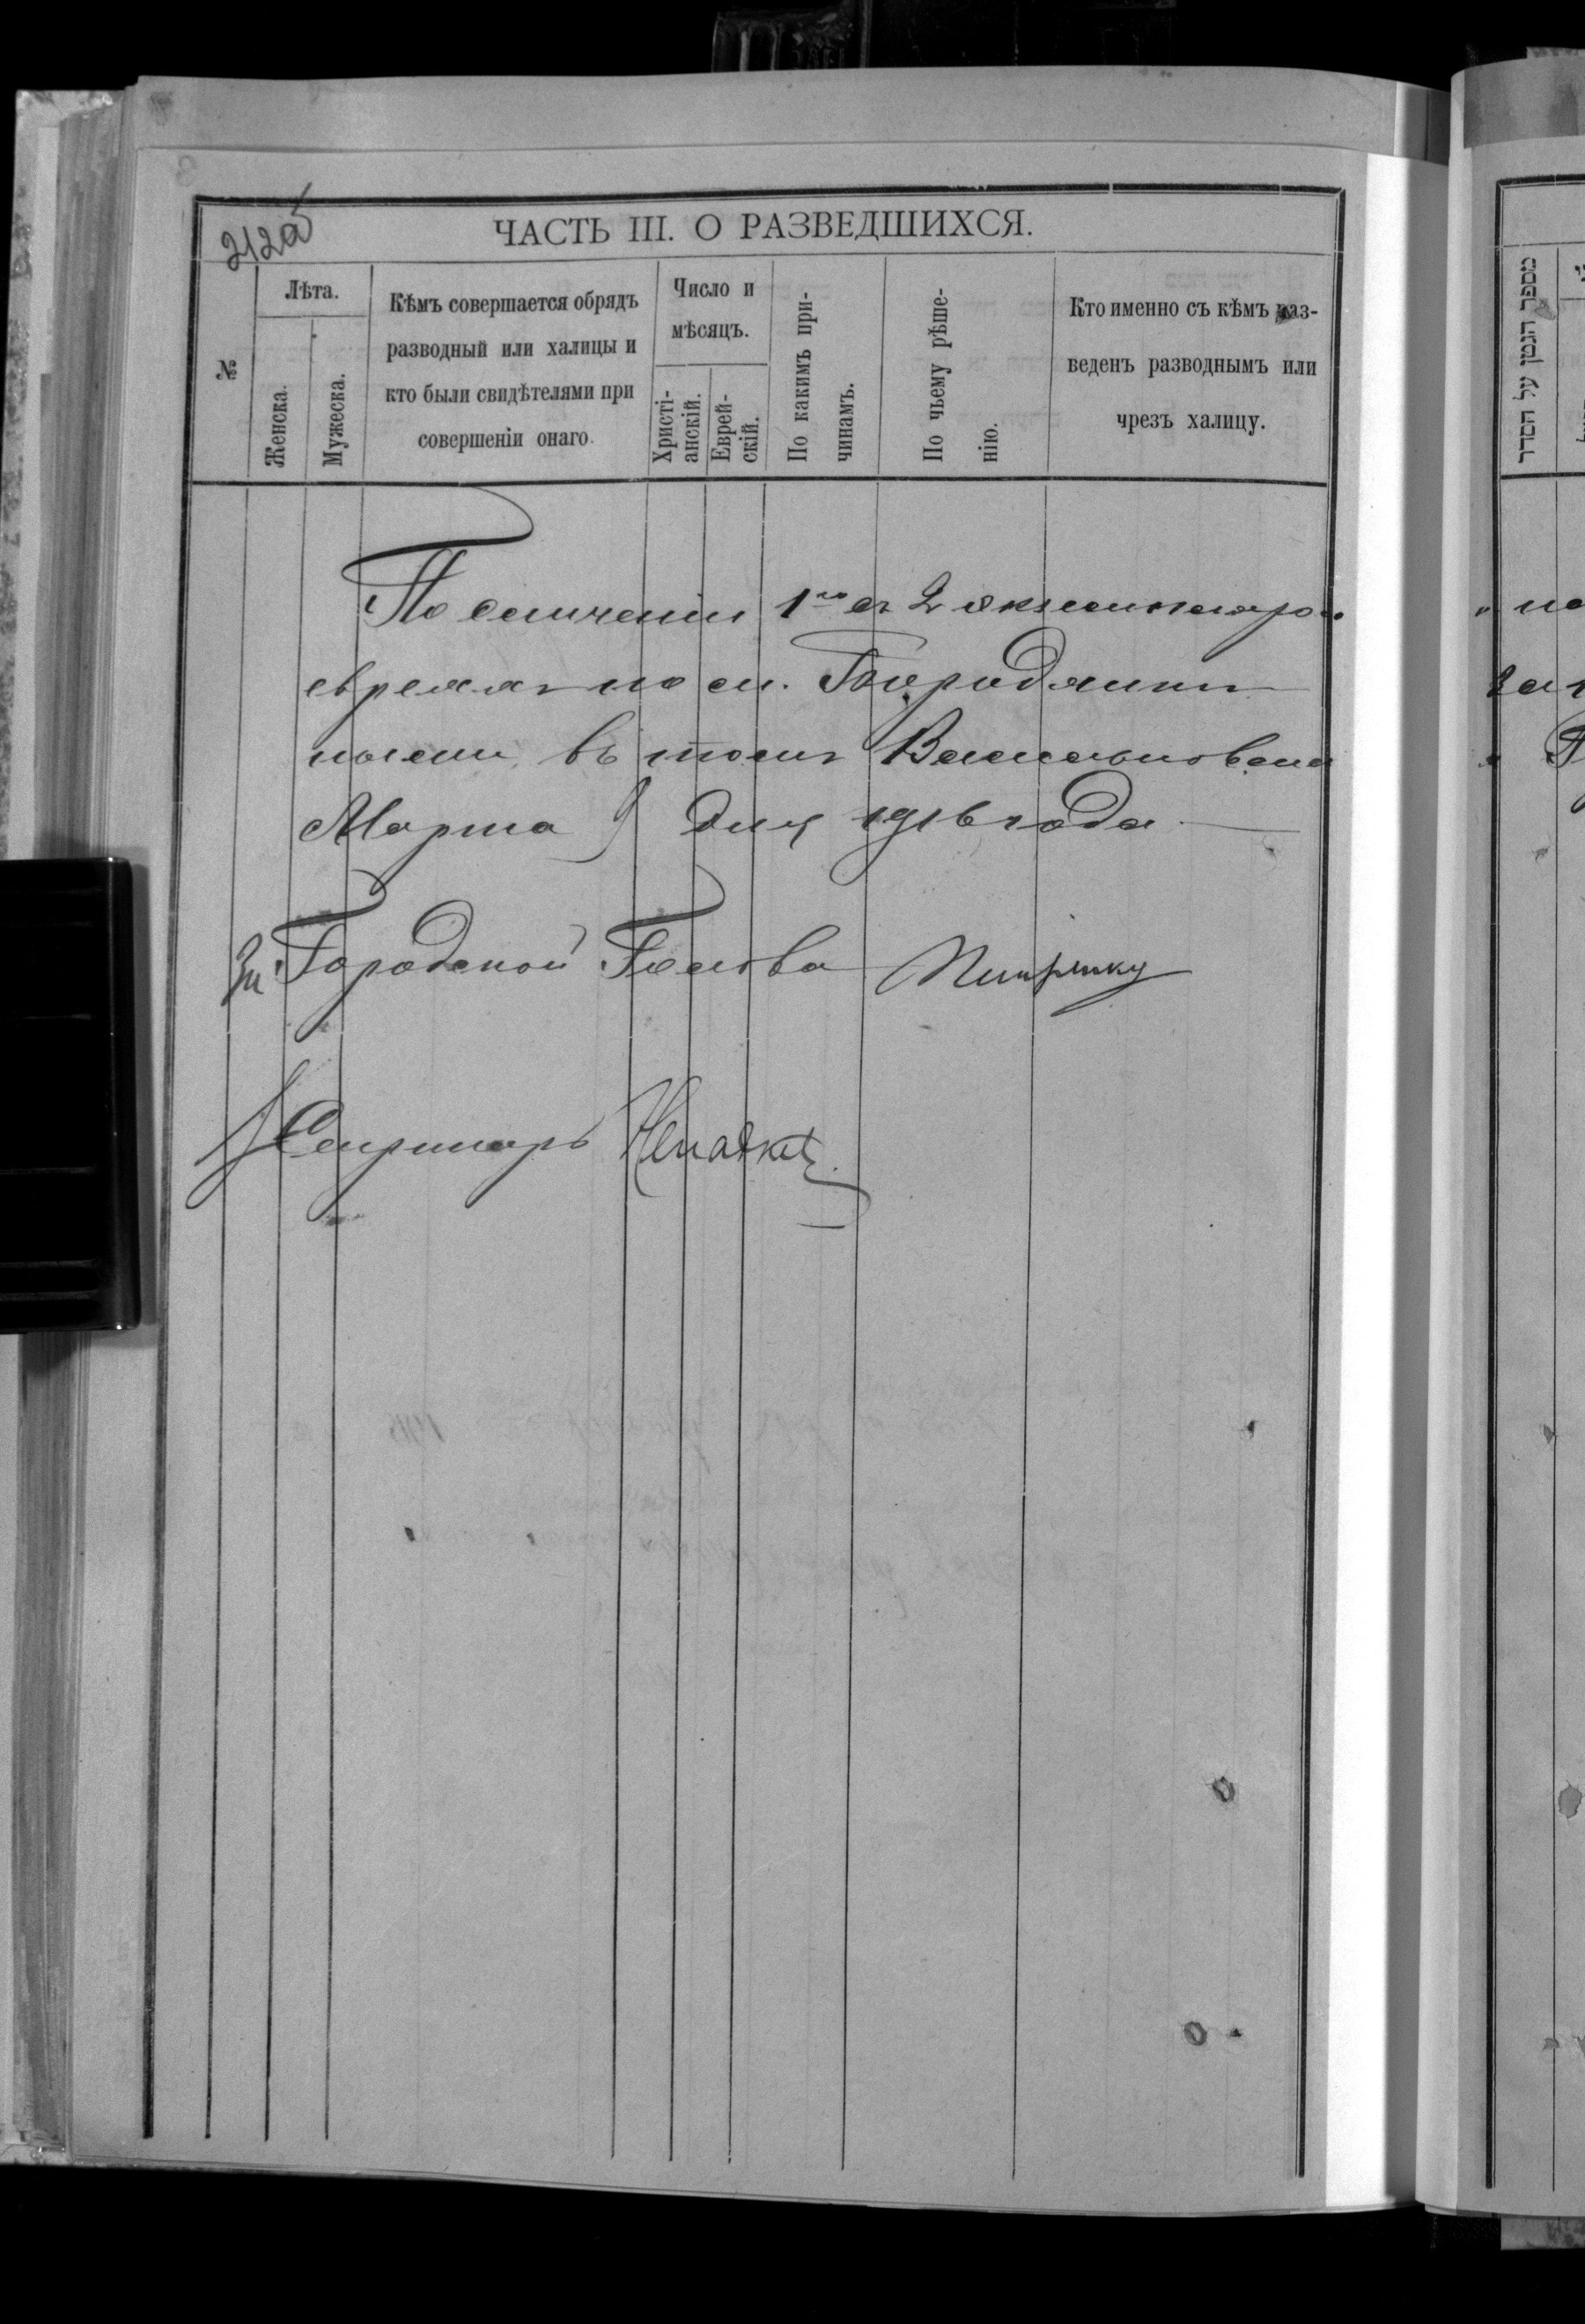 212об
ЧАСТЬ III. О РАЗВЕДШИХСЯ.
№
Лѣта.
Женска.
Мужеска.
Кѣмъ совершается обрядъ
разводный или халицы и
кто были свидѣтелями при
совершеніи онаго.
Число и
мѣсяцъ.
Христі-
анскій.
Еврей-
скій.
По какимъ при-
чинамъ.
По чьему рѣше-
нію.
Кто именно съ кѣмъ раз-
веденъ разводнымъ или
чрезъ халицу.
По сличеніи 1го съ 2 экземпляро
евреях по м. Бородянкѣ
въ томъ
Марта 9 дня 1916 года
Городской Голова
Секретарь
מספר הגטן על הסדר